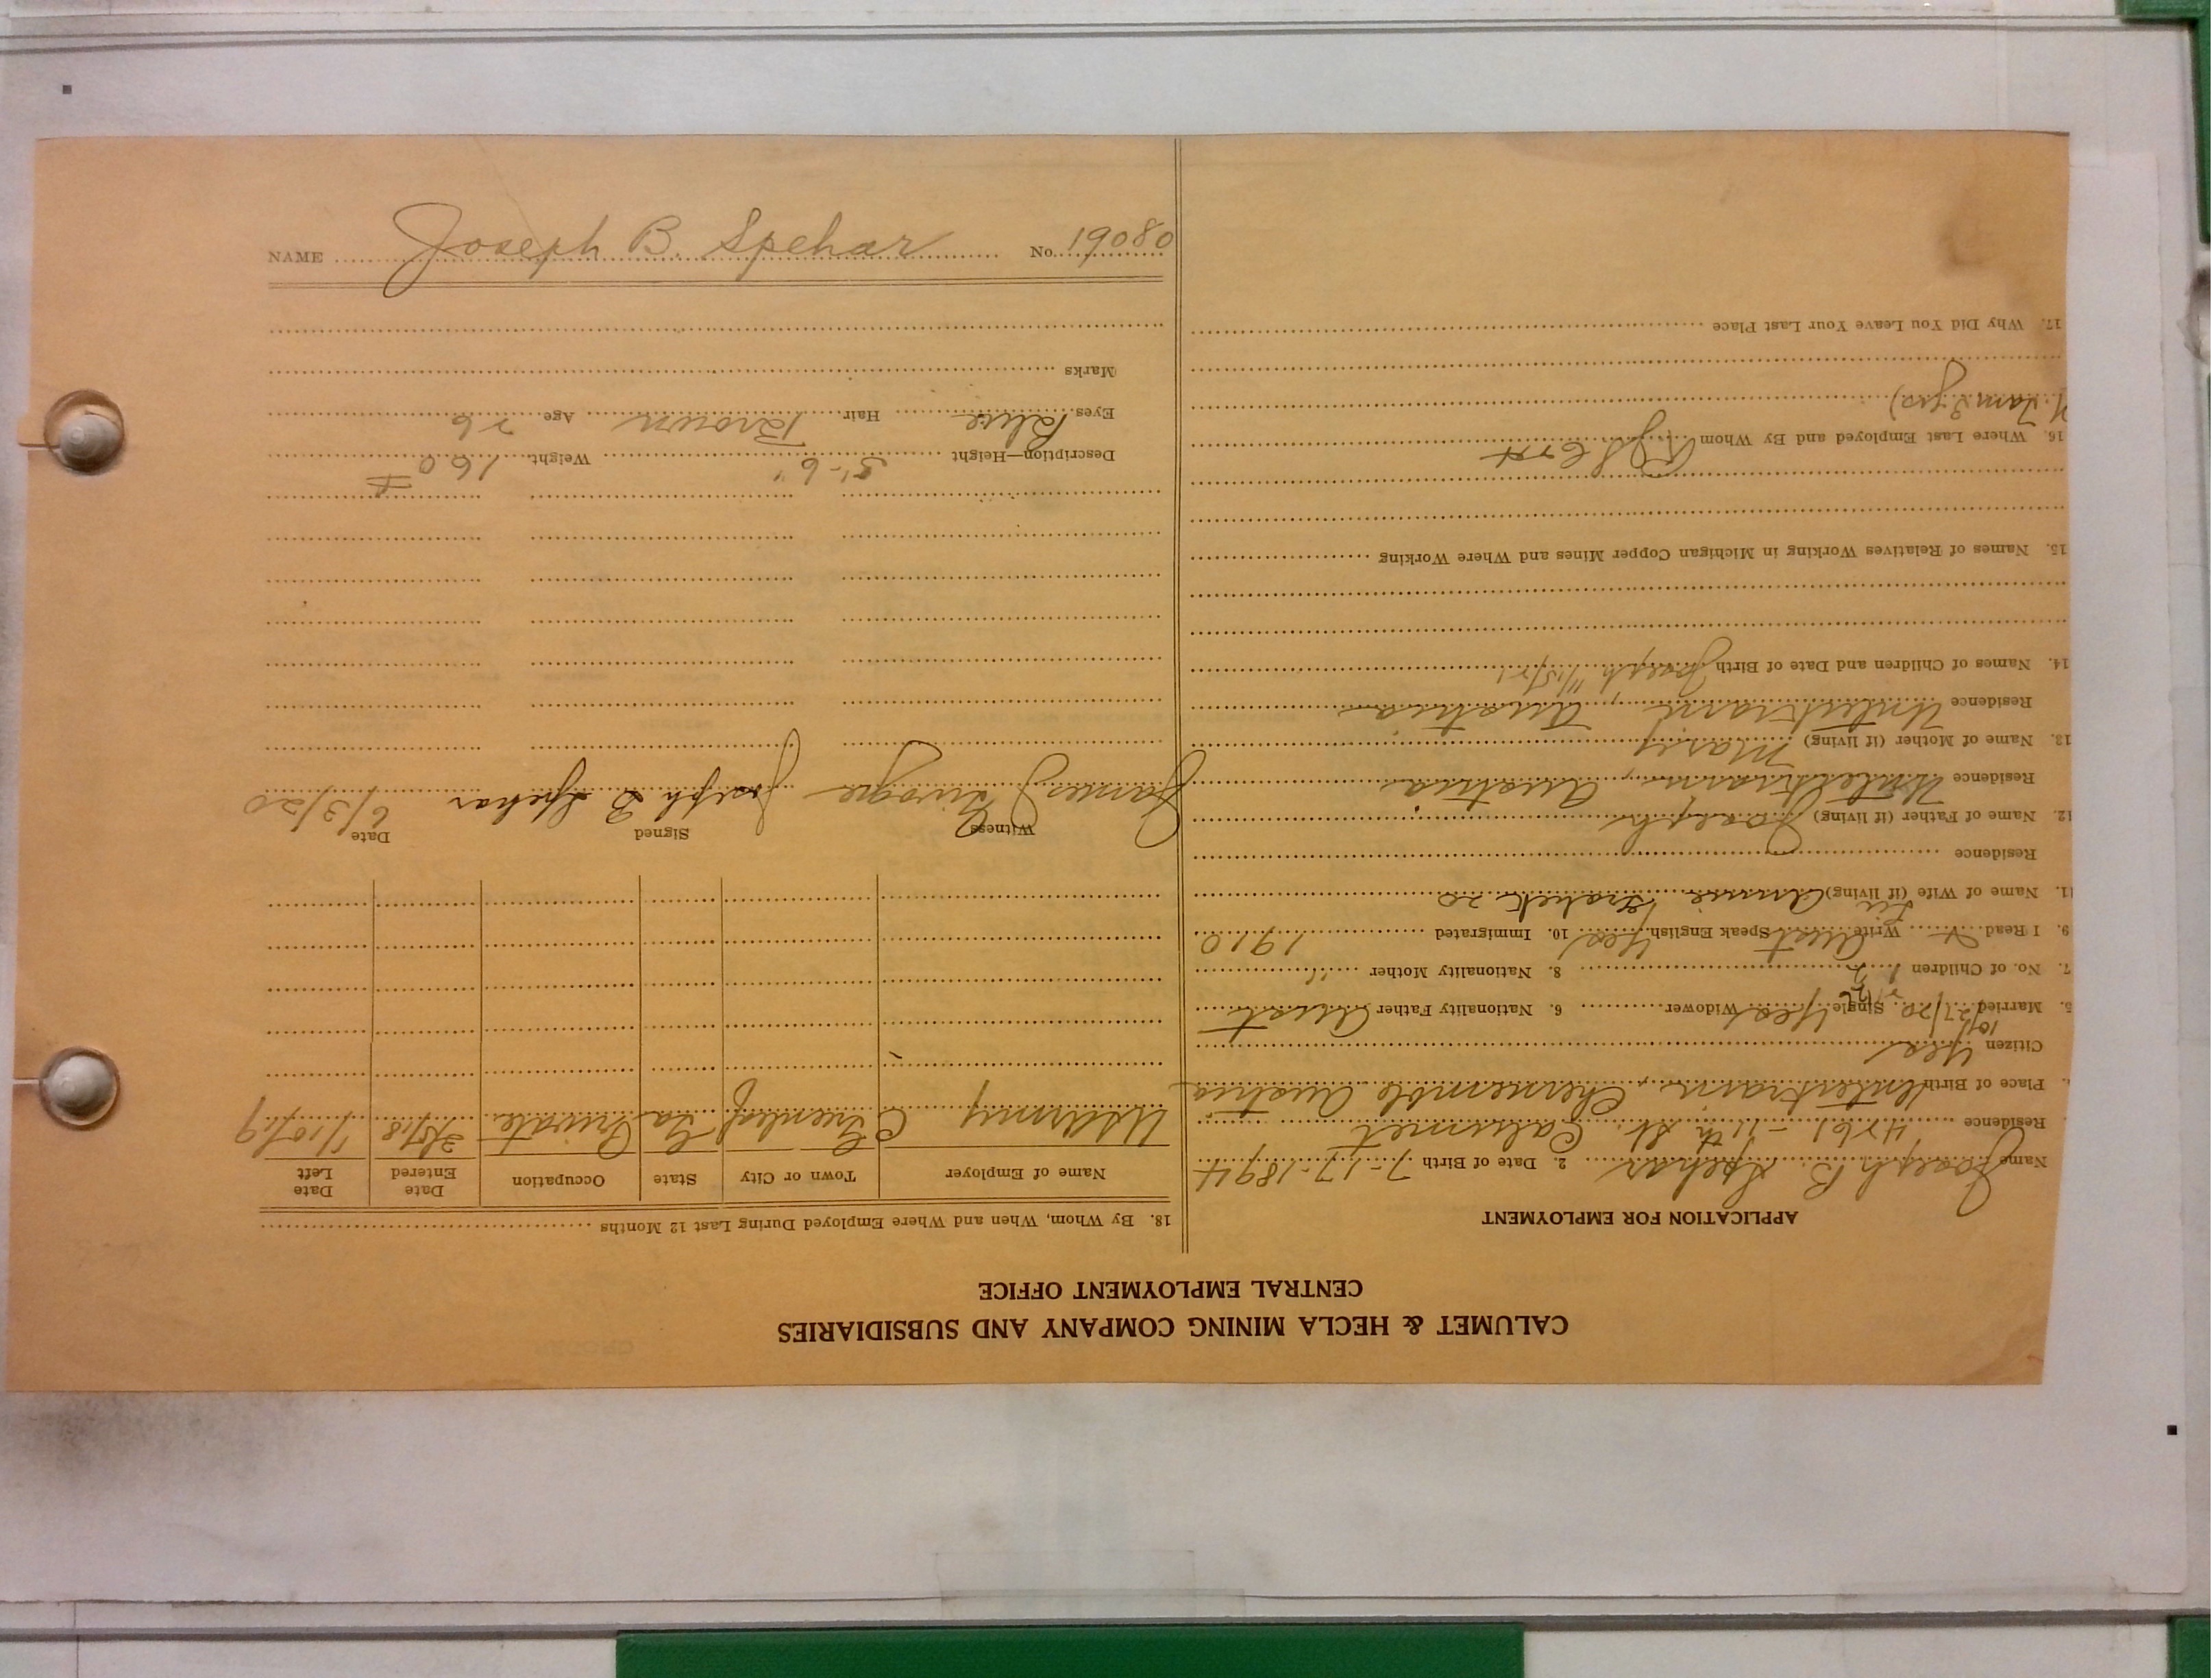 CALUMET & HECLA MINING COMPANY AND SUBSIDIARIES
CENTRAL EMPLOYMENT OFFICE
APPLICATION FOR EMPLOYMENT
Name Joseph B. Spehar 2. Date of Birth 7-17-1894
Residence 4261-11th St. Calumet
Place of Birth Unterkrain, Chernemble Austria
Citizen Yes
5. Married 10/27/20 Single Yes Widower 6. Nationality Father Aust
7. No. of Children 8. Nationality Mother "
9. I Read Write Aust Speak English Yes 10. Immigrated 1910
11. Name of Wife (if living) Annie 20
Residence
12. Name of Father (if living) Joseph
Residence Unterkrain, Austria
13. Name of Mother (if living) Mary
Residence Unterkrain, Austria
14. Names of Children and Date of Birth Joseph 11/15/21
15. Names of Relatives Working in Michigan Copper Mines and Where Working
16. Where Last Employed and By Whom
17. Why Did You Leave Your Last Place
18. By Whom, When and Where Employed During Last 12 Months
Name of Employer Town or City State Occupation Date Entered Date Left
US Army C Greenleaf Ga Private 1/10/19
Witness Signed Date
James Joseph B Spehar 6/3/20
Description—Height 5'-6" Weight 160 #
Eyes Blue Hair Brown Age 26
Marks
NAME Joseph B. Spehar No. 19080